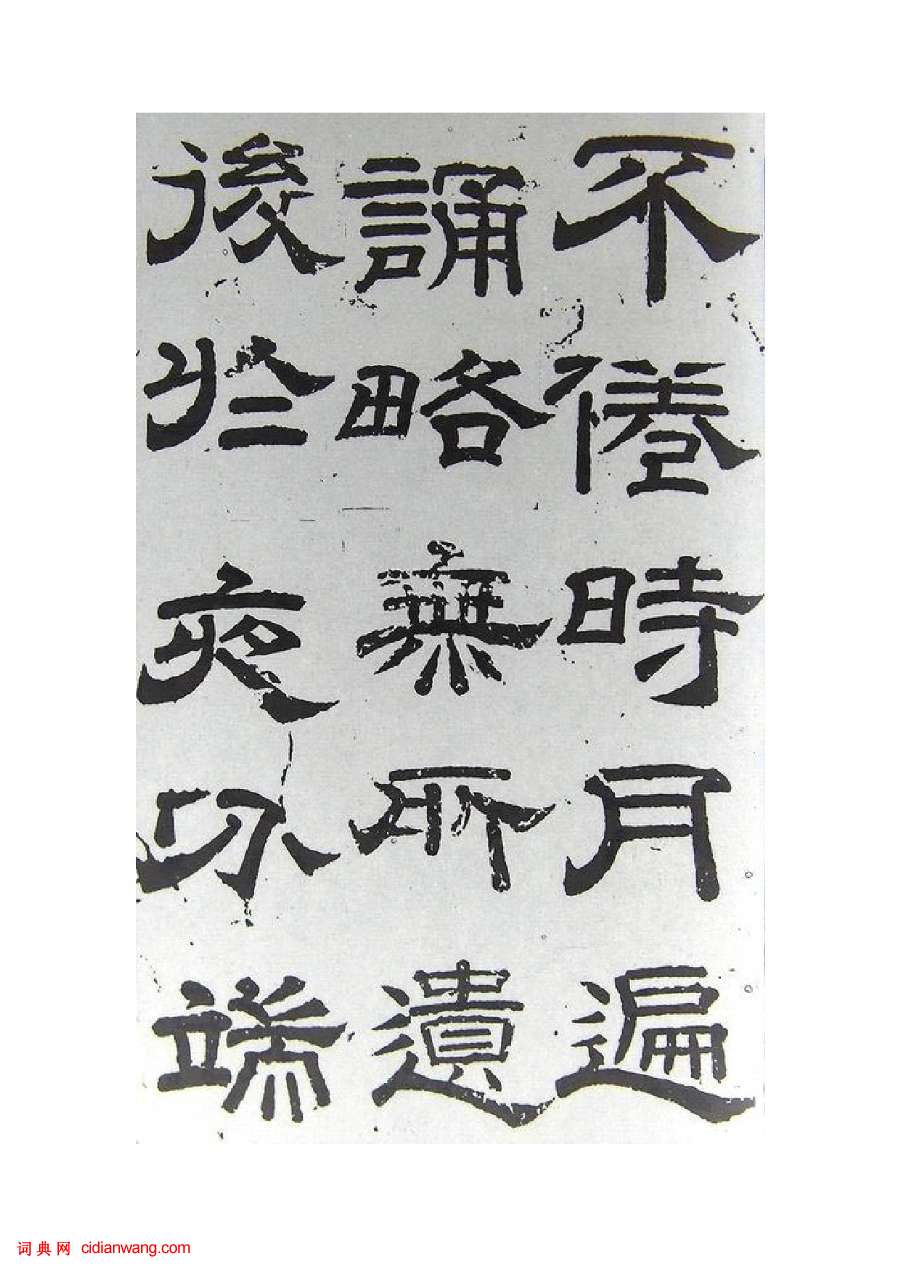 不倦時月遍
誦略無所遺
後於夜分端
词典网 cidianwang.com